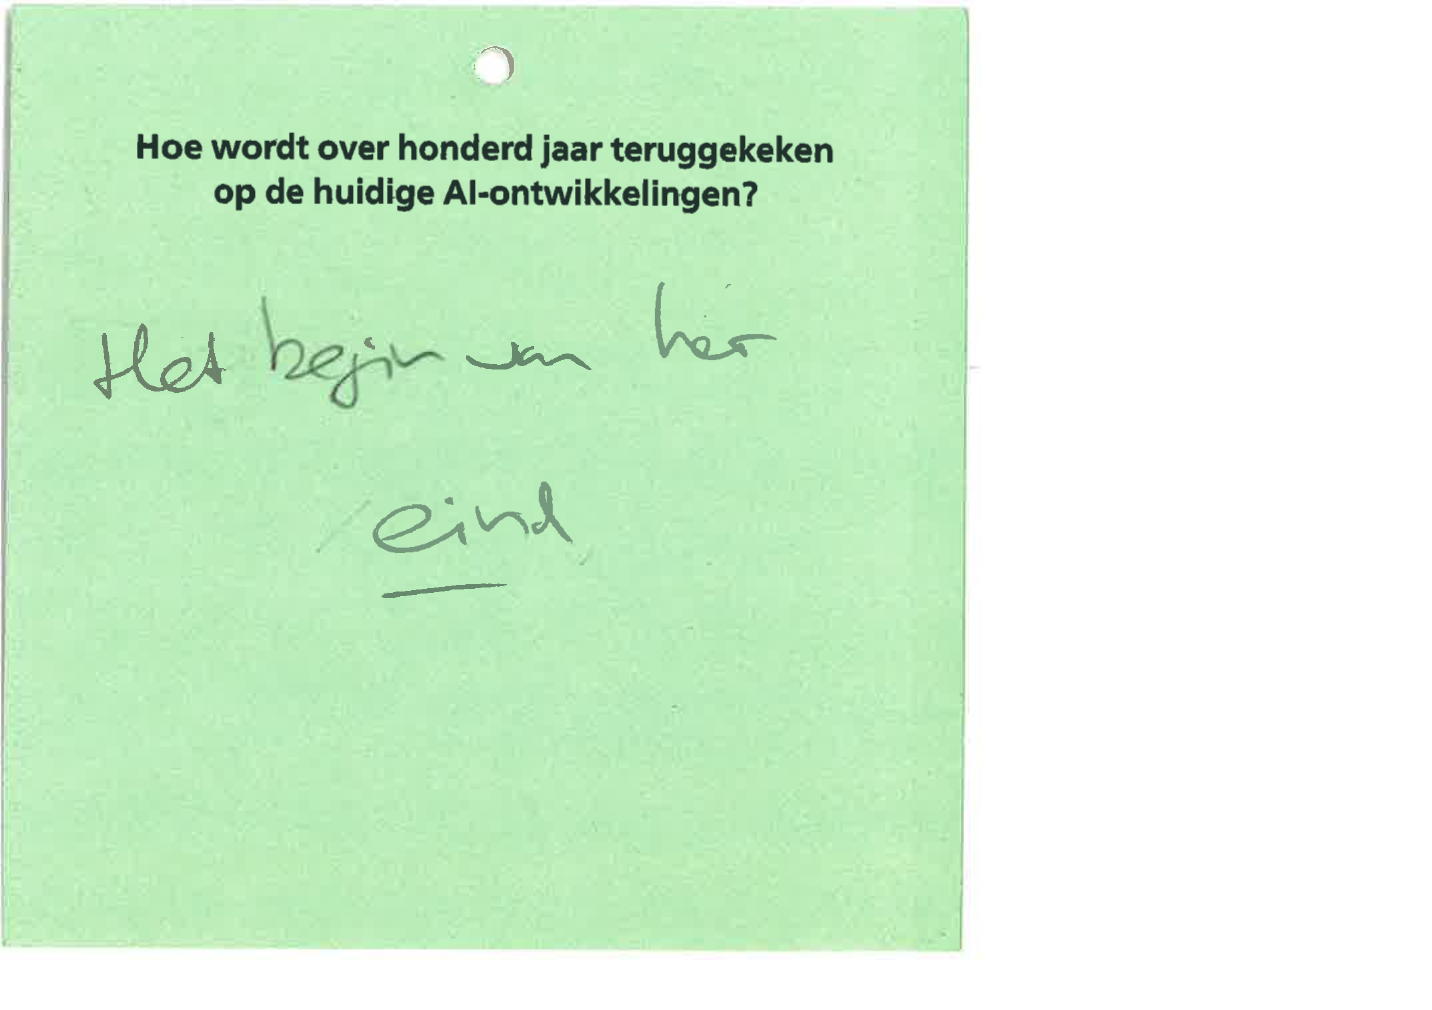 Hoe wordt over honderd jaar teruggekeken
op de huidige AI-ontwikkelingen?
Het begin van het
eind